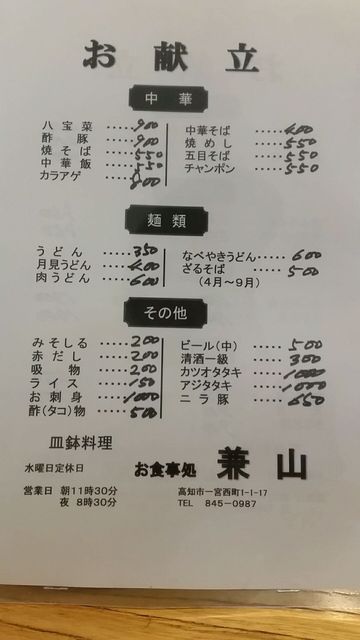 お献立
中華
八宝菜 ・・・・・900
酢豚 ・・・・・900
焼そば ・・・・・550
中華飯 ・・・・・550
カラアゲ ・・・・・800
中華そば ・・・・・400
焼めし ・・・・・550
五目そば ・・・・・550
チャンポン ・・・・・550
麺類
うどん ・・・・・350
月見うどん ・・・・・400
肉うどん ・・・・・600
なべやきうどん ・・・・・600
ざるそば ・・・・・500
(4月〜9月)
その他
みそしる ・・・・・200
赤だし ・・・・・200
吸物 ・・・・・200
ライス ・・・・・150
お刺身 ・・・・・1000
酢(タコ)物 ・・・・・500
ビール(中) ・・・・・500
清酒一級 ・・・・・300
カツオタタキ ・・・・・1000
アジタタキ ・・・・・1000
ニラ豚 ・・・・・650
皿鉢料理
水曜日定休日
営業日 朝11時30分
夜 8時30分
お食事処 兼山
高知市一宮西町1-1-17
TEL 845-0987